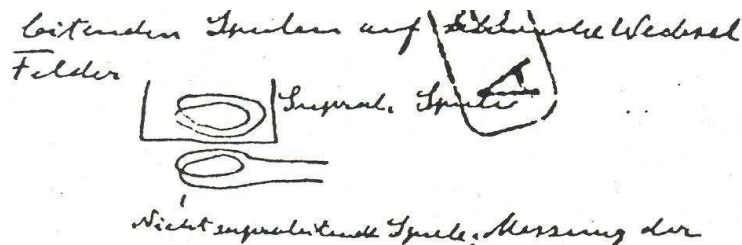 leitenden Spulen auf Wechsel
Felder
Supral. Spule
Nicht supraleitende Spule. Messung der